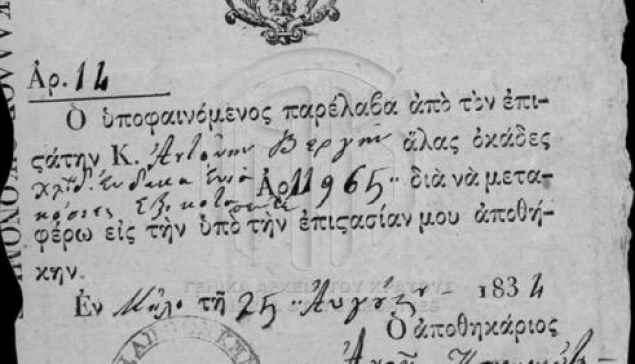 Ἀρ. 14
Ὁ ὑποφαινόμενος παρέλαβα ἀπὸ τὸν ἐπι-
ςάτην Κ. Ἀντώνην Βεργην ἅλας ὀκάδες
χιλ. ἕνδεκα ἐνια Ἀρ. 11965 διὰ νὰ μετα-
κόσιες ἑξήκοντα πέντε
φέρω εἰς τὴν ὑπὸ τὴν ἐπιςασίαν μου ἀποθή-
κην.
Ἐν Μήλο τῇ 25 Αὐγούς 1834
Ὁ ἀποθηκάριος
ΓΕΝΙΚΑ ΑΡΧΕΙΑ ΤΟΥ ΚΡΑΤΟΥΣ